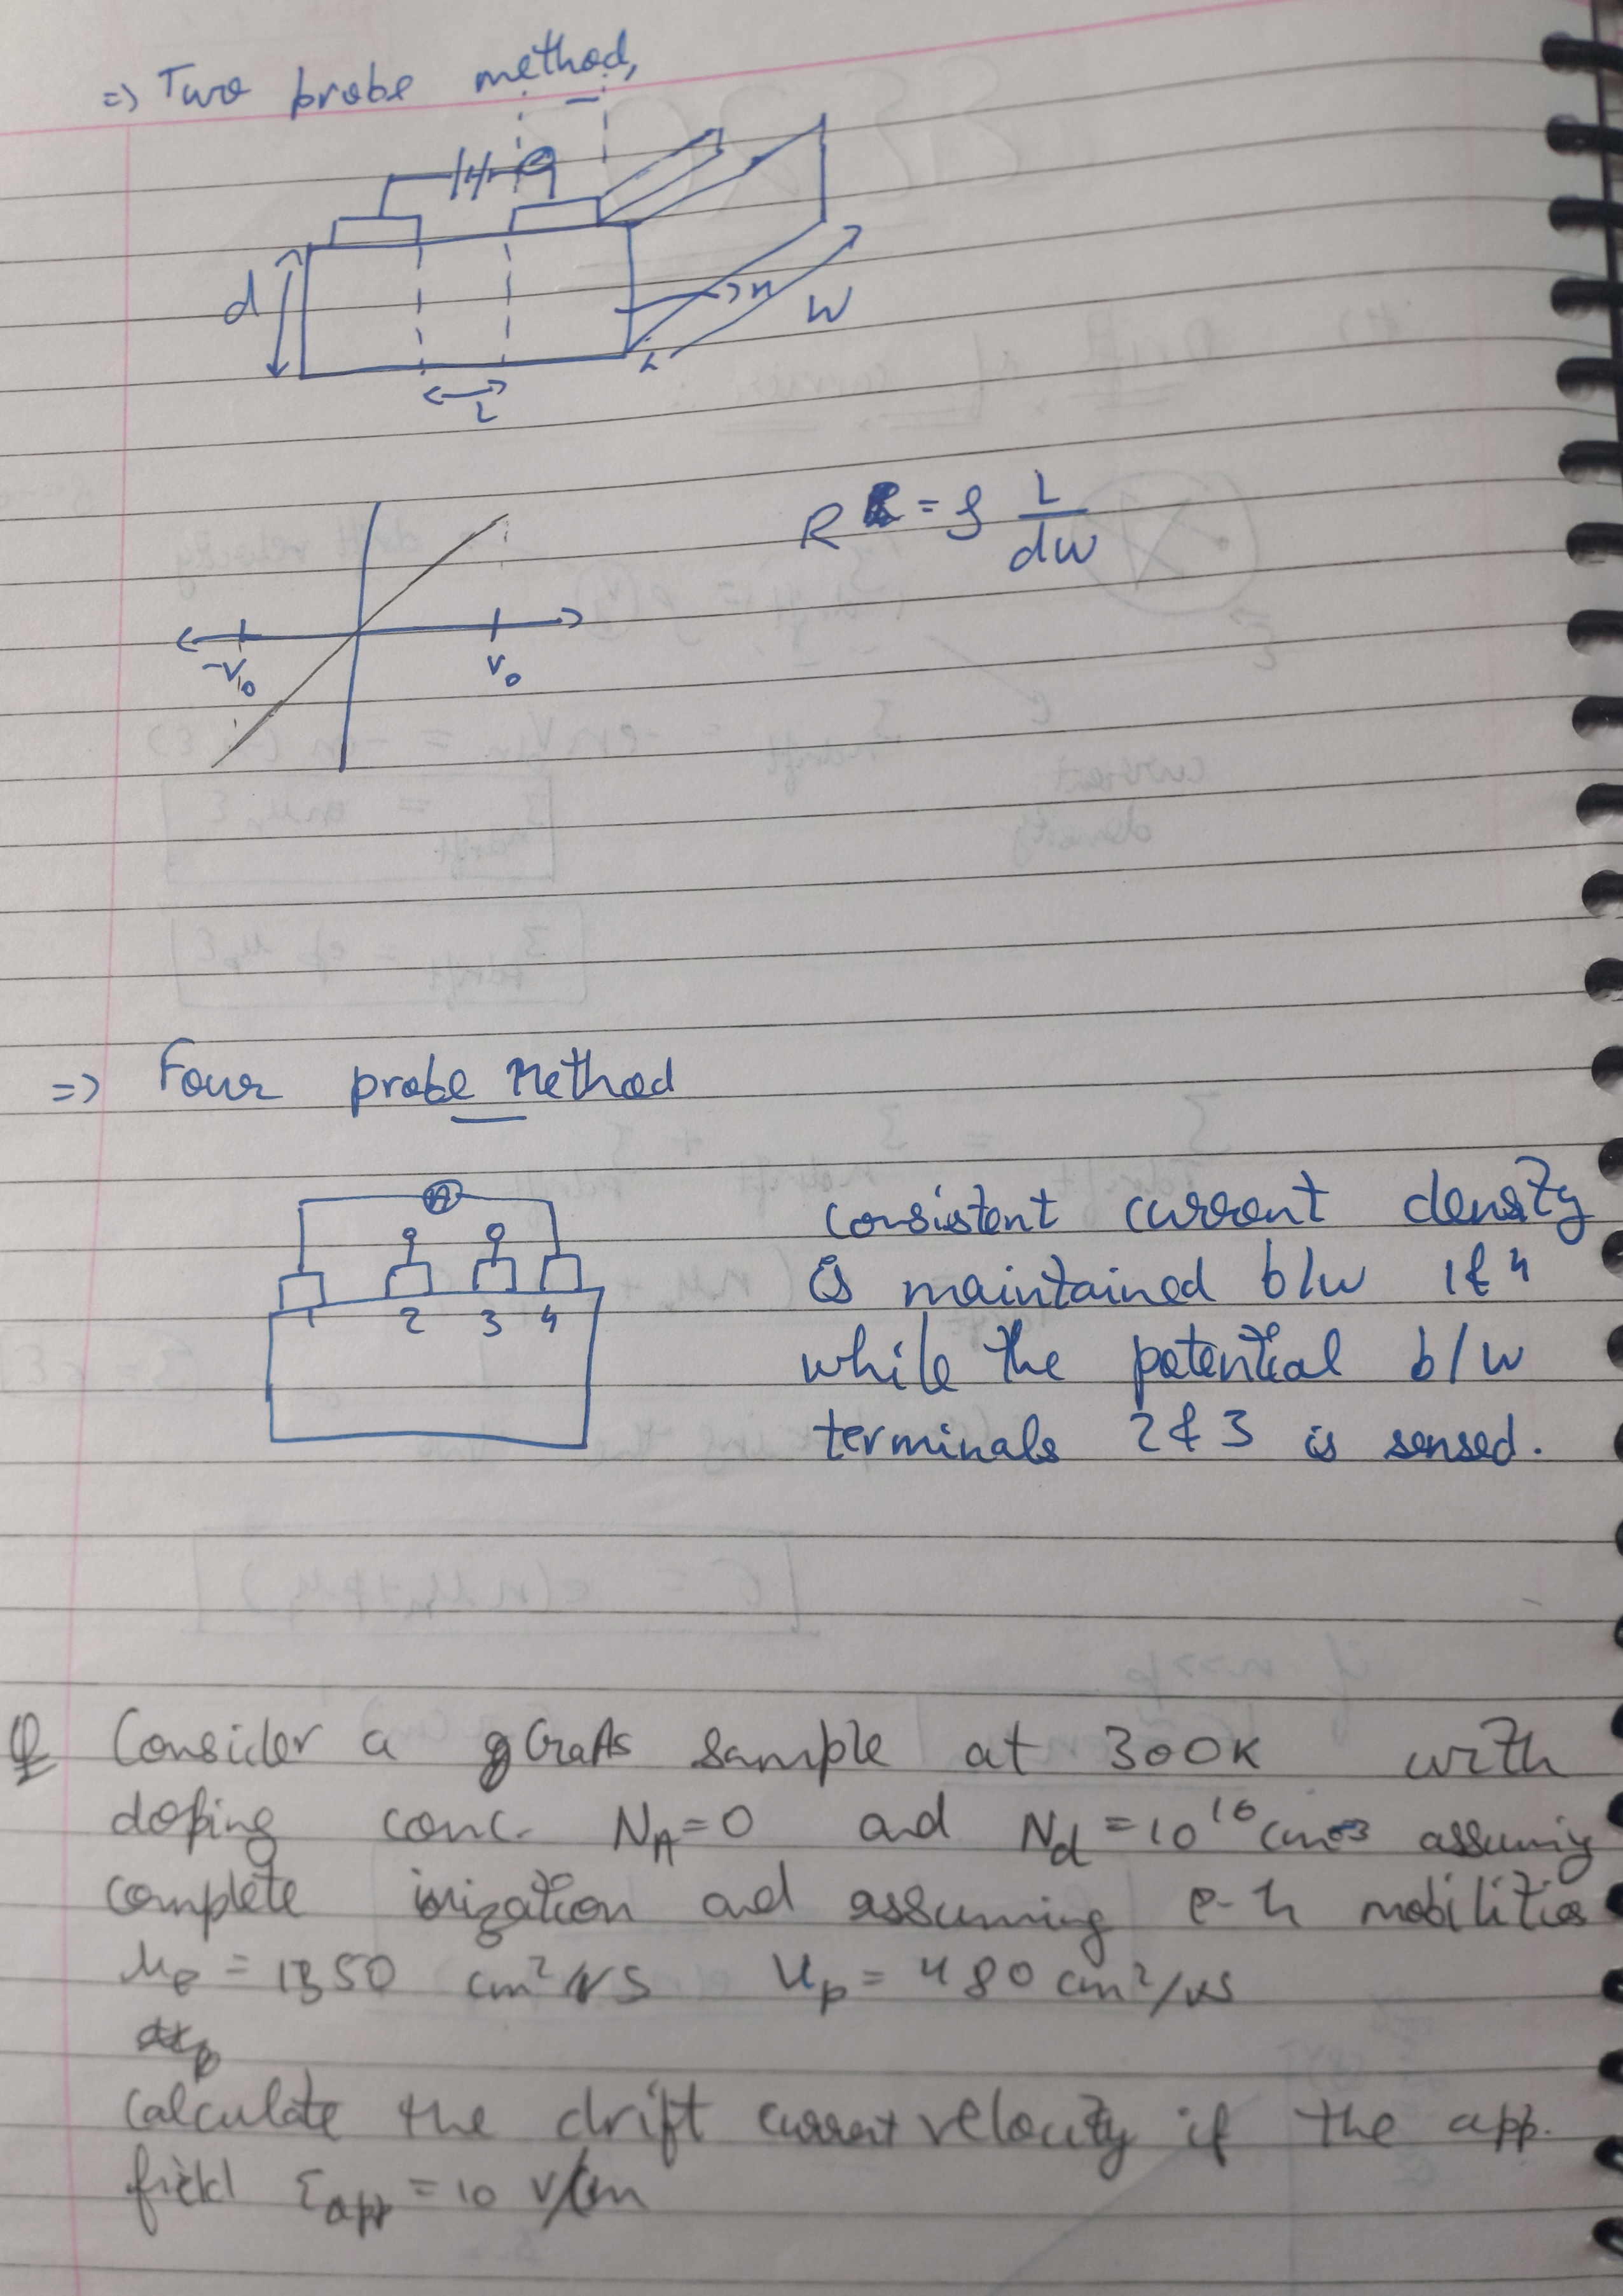 => Two probe method,
d
n
W
L
R = ρ L/dw
-V₀
V₀
=> Four probe Method
A
1 2 3 4
consistent current density
is maintained b/w 1 & 4
while the potential b/w
terminals 2 & 3 is sensed.
Q Consider a GaAs sample at 300K with
doping conc. N_A=0 ad N_d=10¹⁶cm-3 assuming
complete ionization ad assuming e-h mobilities
μ_e = 1350 cm²/VS μ_p = 480 cm²/VS
calculate the drift current velocity if the app.
field ε_app = 10 V/cm